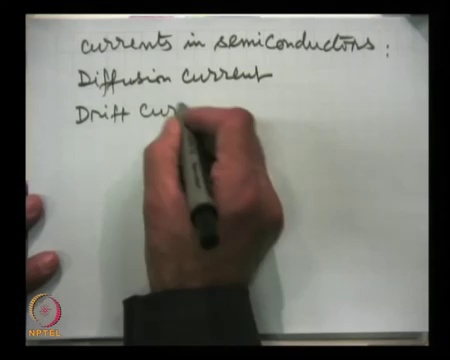 currents in semiconductors :
Diffusion current
Drift cur
NPTEL